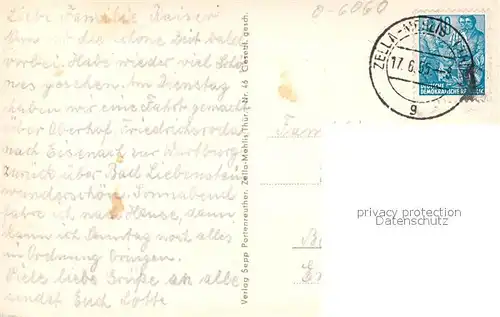 Liebe Familie Kaiser
Nun ist die schöne Zeit bald
vorbei. Habe wieder viel Schö-
nes gesehen. Am Dienstag
haben wir eine Fahrt gemacht
über Oberhof, Friedrichroda
nach Eisenach zur Wartburg
zurück über Bad Liebenstein
wunderschön. Sonnabend
fahre ich nach Hause, dann
kann ich Sonntag noch alles
in Ordnung bringen.
Viele liebe Grüße an alle
sendet Euch Lotte
Verlag Sepp Portenreuther, Zella-Mehlis Thür. Nr. 46 Gesetzl. gesch.
0-6060
ZELLA-MEHLIS
17.6.55
g
DEUTSCHE
DEMOKRATISCHE REPUBLIK
Fam
privacy protection
Datenschutz